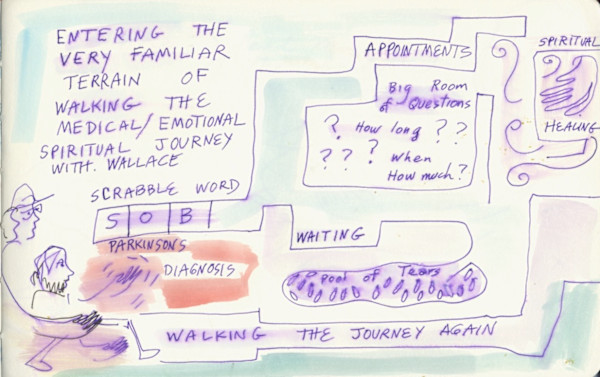 ENTERING THE
VERY FAMILIAR
TERRAIN OF
WALKING THE
MEDICAL/EMOTIONAL
SPIRITUAL JOURNEY
WITH WALLACE
SCRABBLE WORD
SOB
PARKINSONS
DIAGNOSIS
APPOINTMENTS
Big Room
of Questions
? How long ? ?
? ? ? ? When
How much?
SPIRITUAL
HEALING
WAITING
Pool of Tears
WALKING THE JOURNEY AGAIN